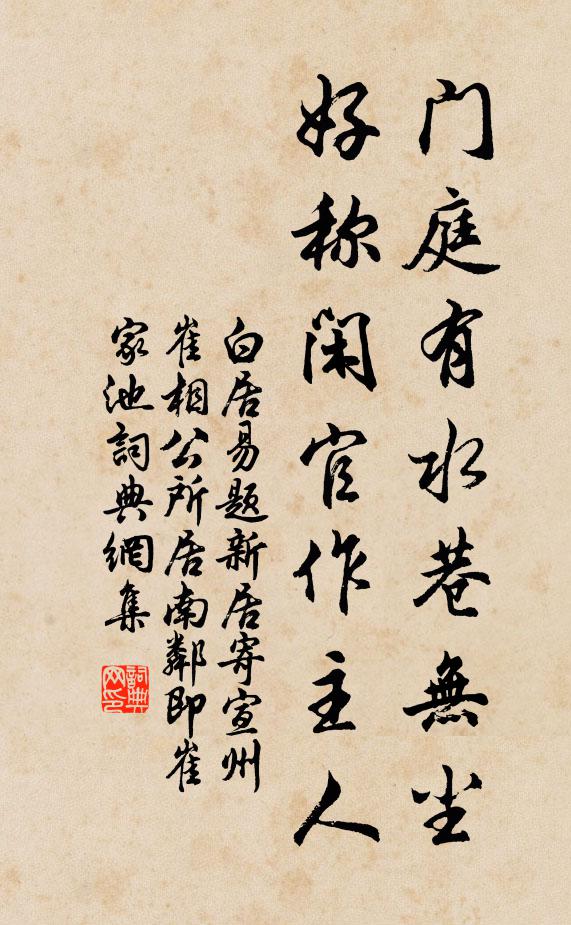 门庭有水巷無尘
好称閑官作主人
白居易题新居寄宣州
崔相公所居南鄰即崔
家池詞典網集
詞典网印